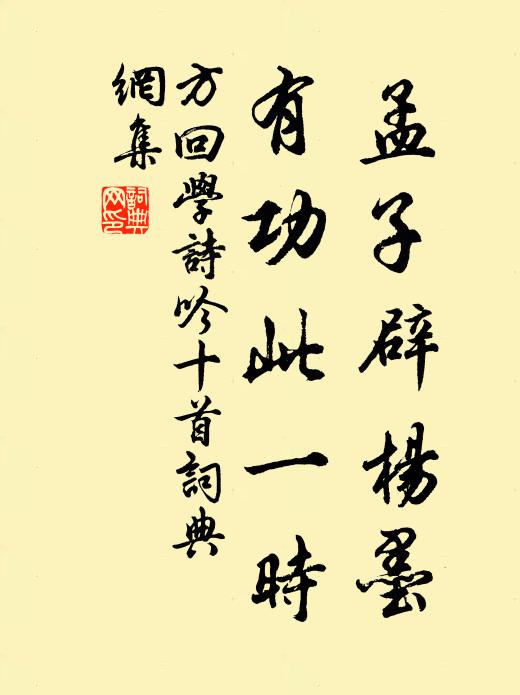 孟子辟楊墨
有功此一時
方回學詩吟十首詞典
網集
詞典網印